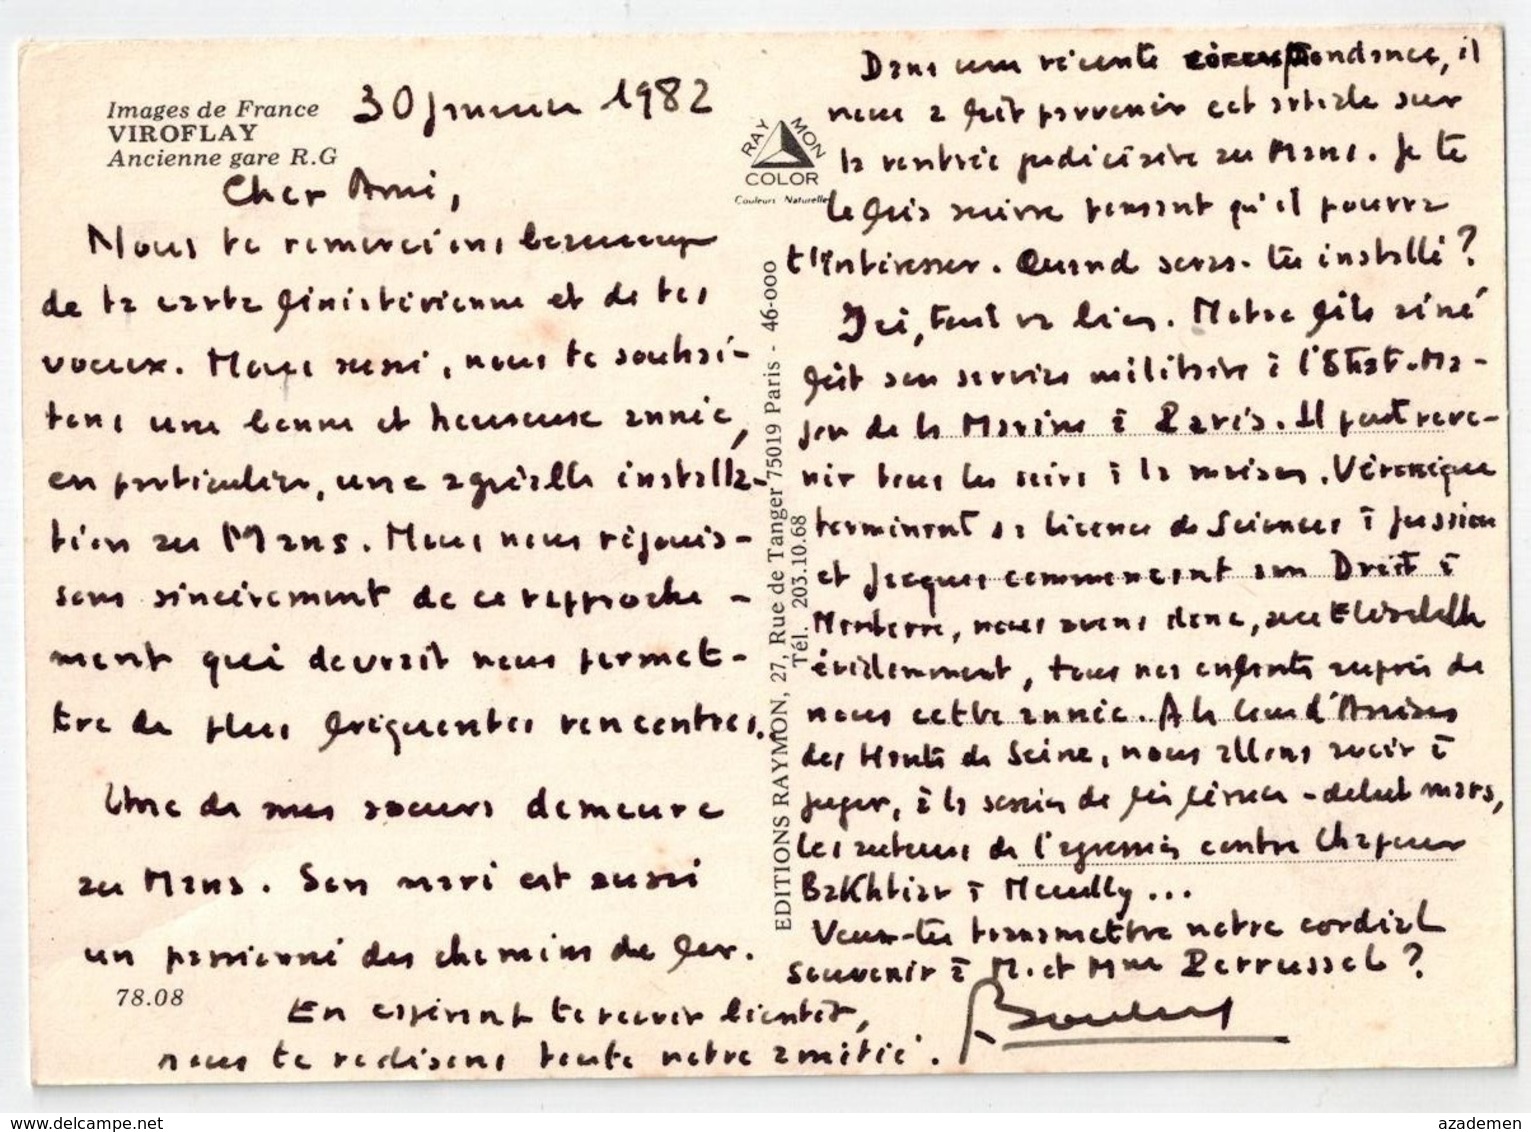 Images de France
VIROFLAY
Ancienne gare R.G
30 janvier 1982
Cher Ami,
Nous te remercions beaucoup
de ta carte finistérienne et de tes
voeux. Nous aussi, nous te souhai-
tons une bonne et heureuse année,
en particulier, une agréable installa-
tion au Mans. Nous nous réjouis-
sons sincèrement de ce rapproche-
ment qui devrait nous permet-
tre de plus fréquentes rencontres.
Une de mes soeurs demeure
au Mans. Son mari est aussi
un passionné des chemins de fer.
78.08
RAY MON
COLOR
Couleurs Naturelles
EDITIONS RAYMON, 27, Rue de Tanger 75019 Paris - 46-000
Tél. 203.10.68
Dans une récente correspondance, il
nous a fait parvenir cet article sur
la rentrée judiciaire au Mans. Je te
le fais suivre pensant qu'il pourra
t'intéresser. Quand seras-tu installé?
Ici, tout va bien. Notre fils aîné
fait son service militaire à l'Etat-Ma-
jor de la Marine à Paris. Il peut reve-
nir tous les soirs à la maison. Véronique
terminant sa licence de Sciences à Jussieu
et Jacques commençant son Droit à
Nanterre, nous avons donc, avec Elisabeth
évidemment, tous nos enfants auprès de
nous cette année. A la Cour d'Assises
des Hauts de Seine, nous allons avoir à
juger, à la session de fin février - début mars,
les auteurs de l'agression contre Chapour
Bakhtiar à Neuilly ...
Veux-tu transmettre notre cordial
souvenir à M. et Mme Perrussel?
En espérant te revoir bientôt,
nous te redisons toute notre amitié.
azademen
delcampe.net